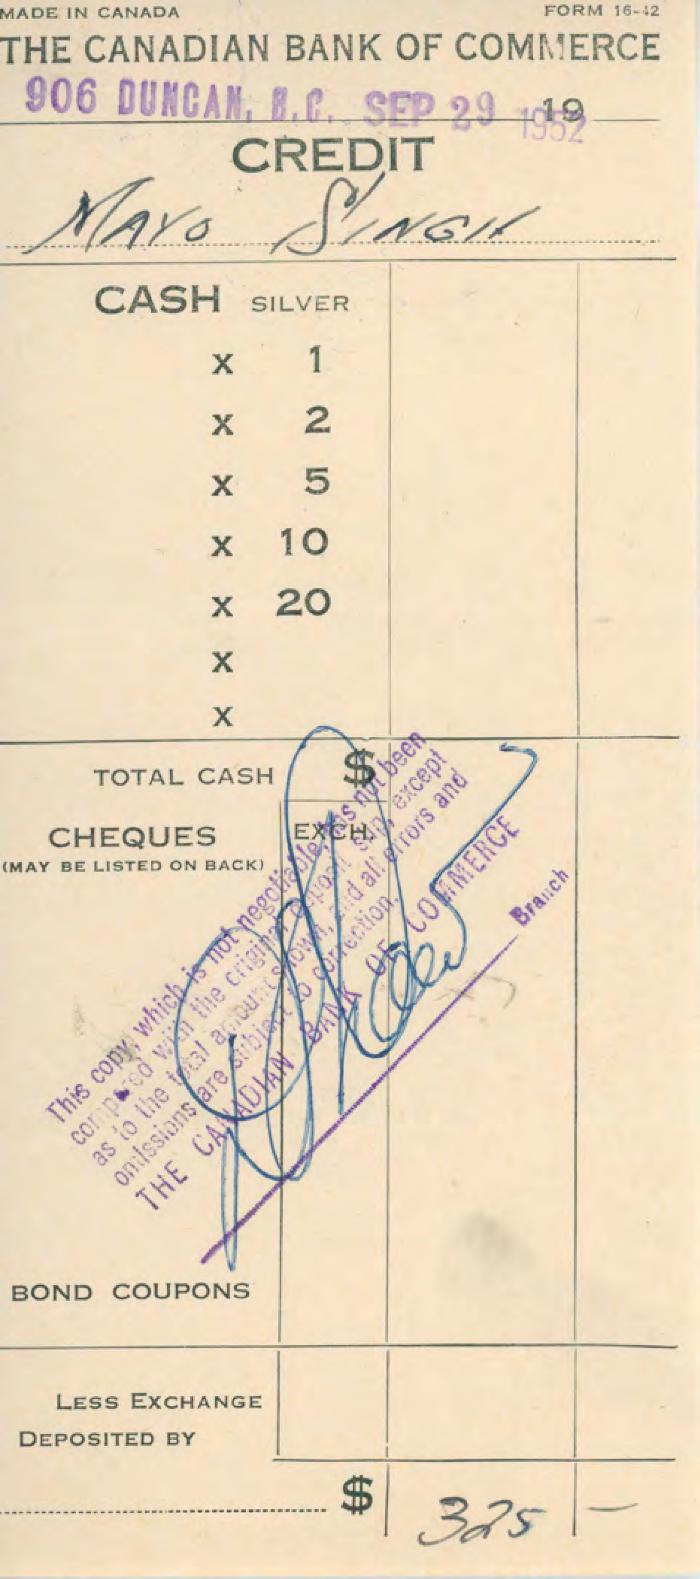 MADE IN CANADA FORM 16-42
THE CANADIAN BANK OF COMMERCE
906 DUNCAN, B.C. SEP 29 1952 19
CREDIT
MAYO SINGH
CASH SILVER
x 1
x 2
x 5
x 10
x 20
x
x
TOTAL CASH $
CHEQUES EXCH.
(MAY BE LISTED ON BACK)
This copy, which is not negotiable has not been
compared with the original deposit slip, except
as to the total amount shown, and all errors and
omissions are subject to correction.
THE CANADIAN BANK OF COMMERCE
Branch
BOND COUPONS
LESS EXCHANGE
DEPOSITED BY
$ 325 —